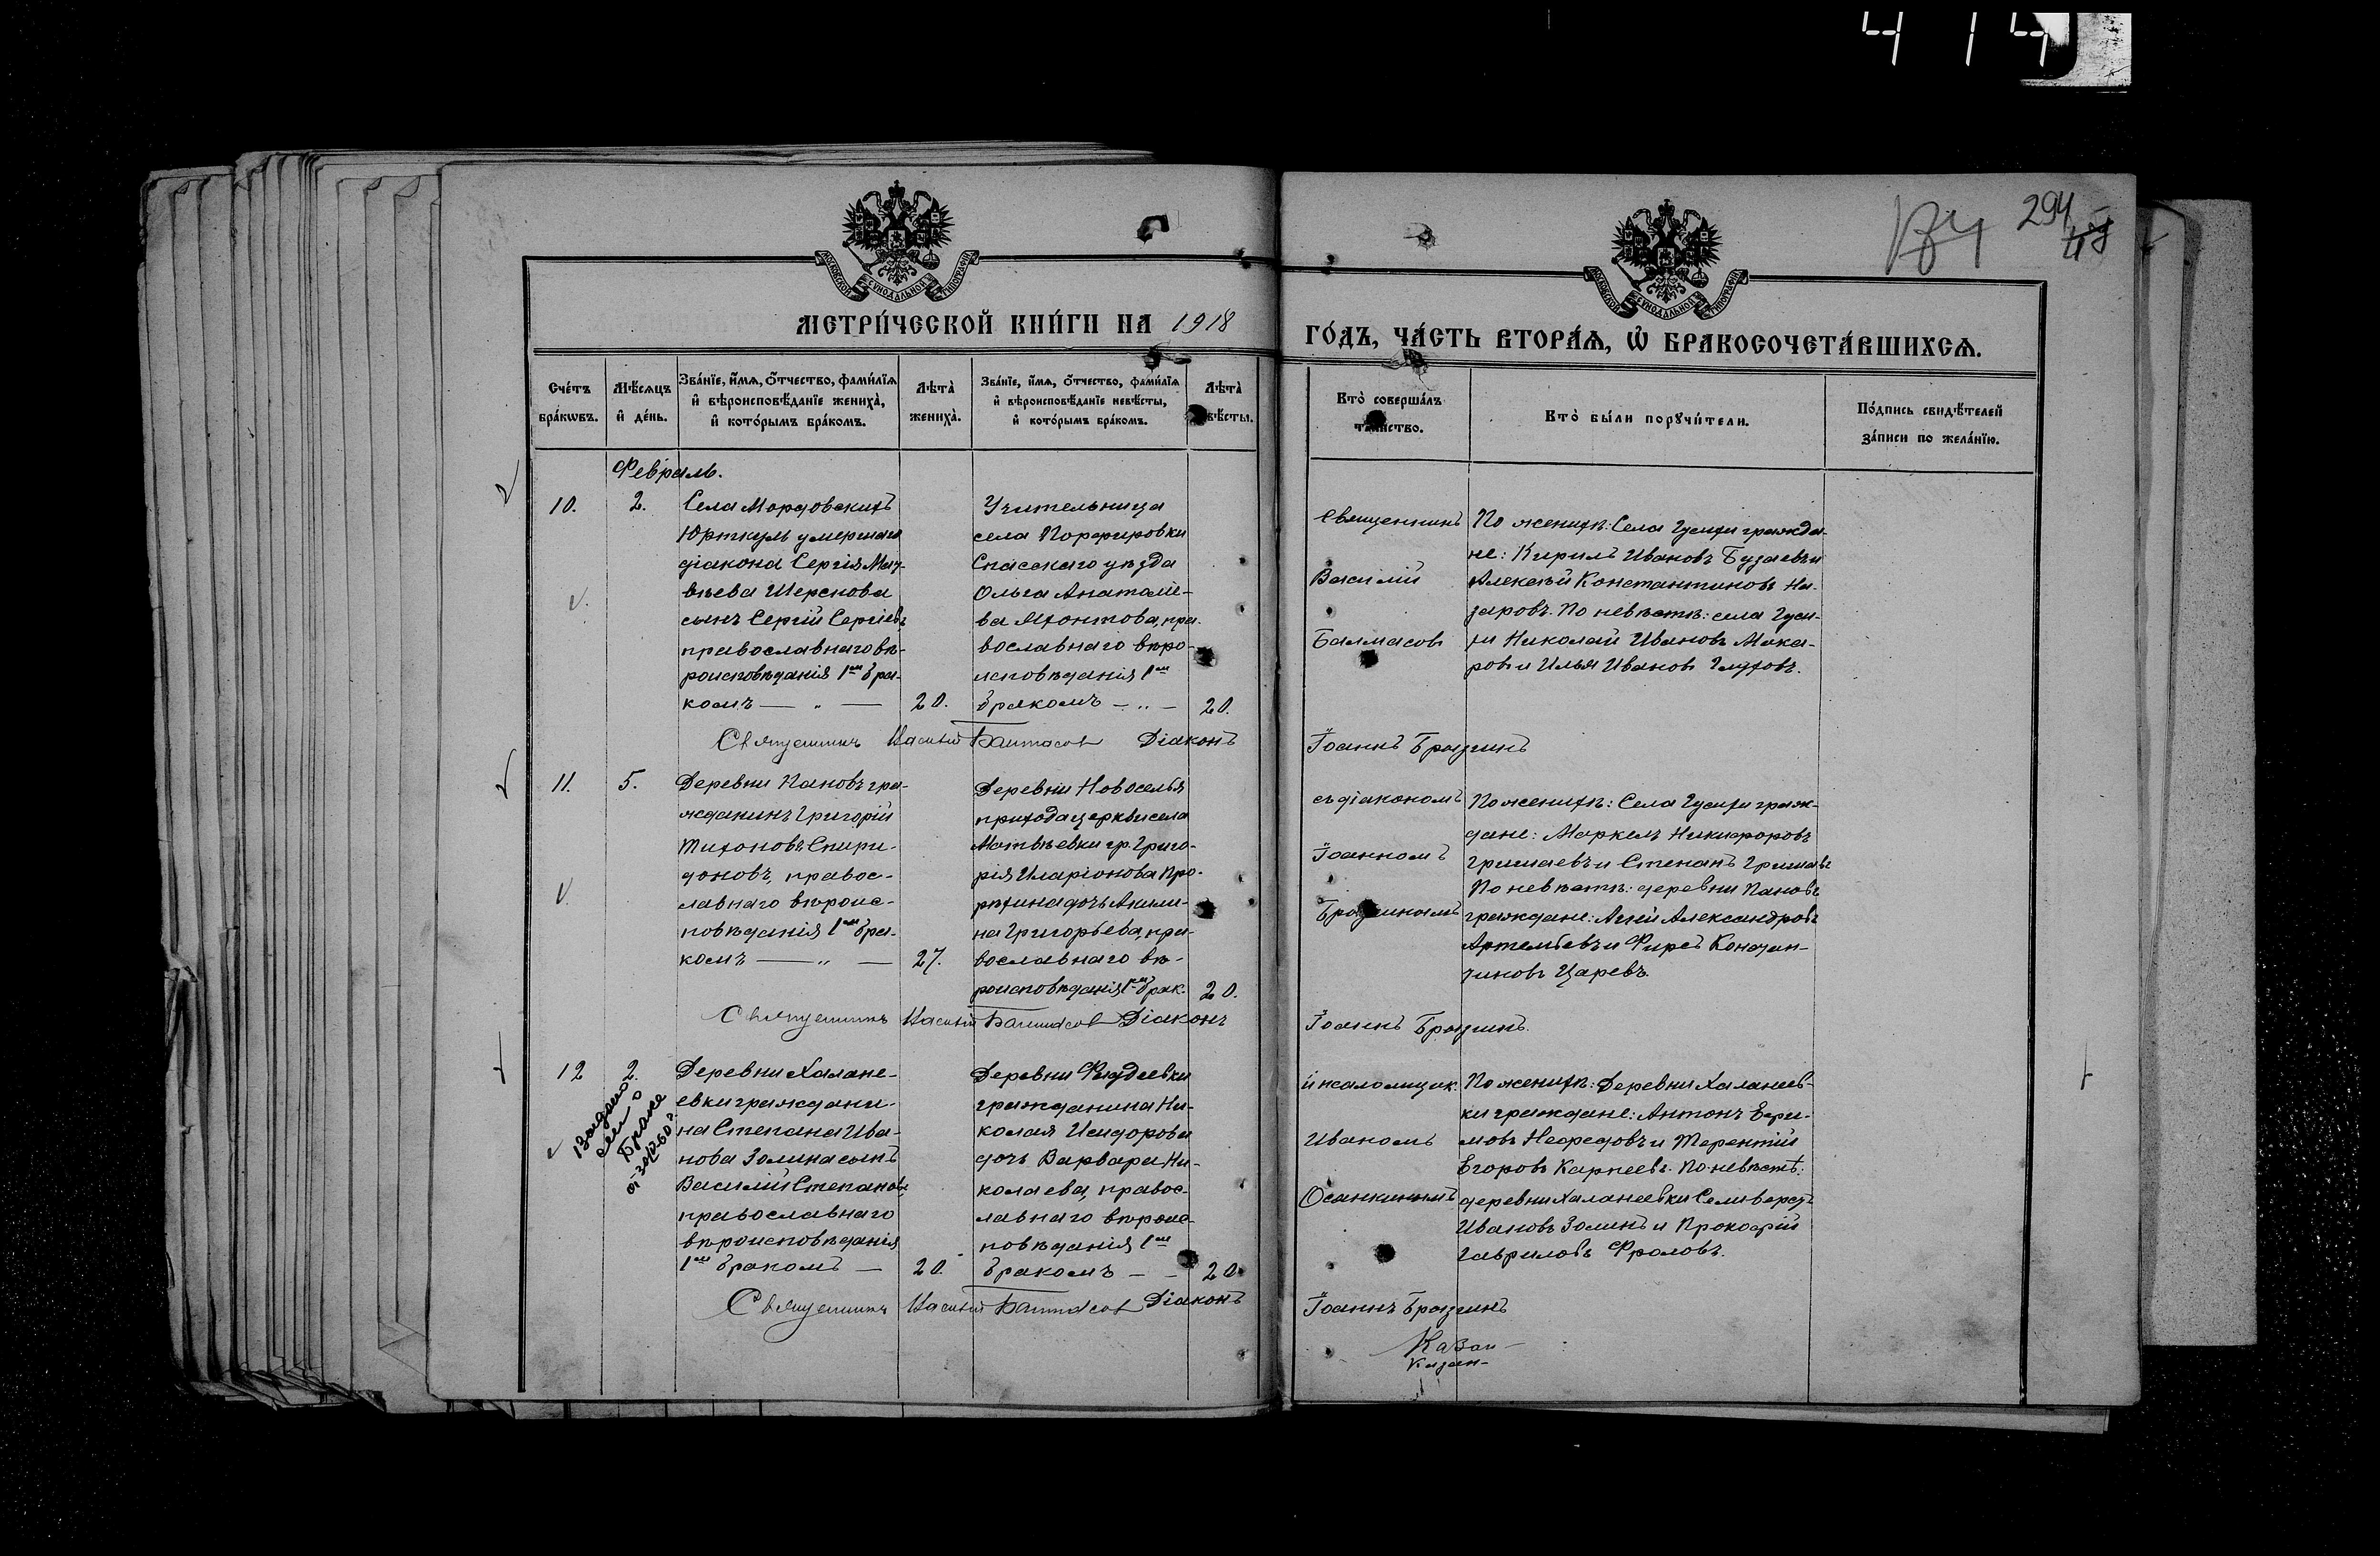 4 14
294
МОСКОВСКОЙ СУНОДАЛЬНОЙ ТИПОГРАФІИ
МОСКОВСКОЙ СУНОДАЛЬНОЙ ТИПОГРАФІИ
МЕТРИ́ЧЕСКОЙ КНИ́ГИ НА 1918
ГО́ДЪ, ЧА́СТЬ ВТОРА́Ѧ, Ѡ҆ БРАКОСОЧЕТА́ВШИХСѦ.
Сче́тъ бра́кѡвъ.
Мѣ́сѧцъ и҆ де́нь.
Зва́нїе, и҆́мѧ, ѻ҆́тчество, фами́лїѧ
и҆ вѣроисповѣ́данїе жениха̀,
и҆ кото́рымъ бра́комъ.
Лѣта̀ жениха̀.
Зва́нїе, и҆́мѧ, ѻ҆́тчество, фами́лїѧ
и҆ вѣроисповѣ́данїе невѣ́сты,
и҆ кото́рымъ бра́комъ.
Лѣта̀
Кто̀ соверша́лъ
та́инство.
Кто̀ бы́ли порꙋчи́тели.
По́дпись свидѣ́телей
за́писи по жела́нїю.
Февраль.
10.
2.
Села Мордовскихъ
Юрткуль умершаго
діакона Сергія Мат-
вѣева Шерснова
сынъ Сергій Сергіевъ,
православнаго вѣ-
роисповѣданія 1ымъ бра-
комъ — „ —
20.
Учительница
села Порфировки
Спасскаго уѣзда
Ольга Анатоліе-
ва Яхонтова, пра-
вославнаго вѣро-
исповѣданія 1ымъ
бракомъ — „ —
20.
Священникъ
Василій
Балмасовъ
По женихѣ: Села Гусихи гражда-
не: Кирилъ Ивановъ Бузаевъ и
Алексѣй Константиновъ На-
заровъ. По невѣстѣ: села Гуси-
хи Николай Ивановъ Мака-
ровъ и Илья Ивановъ Глуховъ.
Священникъ Василій Балмасовъ Діаконъ
Іоаннъ
11.
5.
Деревни Пановъ гра-
жданинъ Григорій
Тихоновъ Спири-
доновъ, правос-
лавнаго вѣроис-
повѣданія 1ымъ бра-
комъ — „ —
27.
Деревни Новоселья
прихода церкви села
Матвѣевки гр. Григо-
рія Иларіонова Про-
рѣхина дочь Акили-
на Григорьева, пра-
вославнаго вѣ-
роисповѣданія 1ымъ брак.
20.
съ діакономъ
Іоанномъ
По женихѣ: Села Гусихи граж-
дане: Маркелъ Никифоровъ
Гришаевъ и Степанъ Гришаевъ
По невѣстѣ: деревни Пановъ
граждане: Агѣй Александровъ
Артемьевъ и Фирсъ
Царевъ.
Священникъ Василій Балмасовъ Діаконъ
Іоаннъ
12
2.
Выдано
о
Браке
Деревни Халане-
евки граждани-
на Степана Ива-
нова Золина сынъ
Василій Степановъ,
православнаго
вѣроисповѣданія
1ымъ бракомъ —
20.
Деревни
гражданина Ни-
колая Исидорова
дочь Варвара Ни-
колаева, правос-
лавнаго вѣроис-
повѣданія 1ымъ
бракомъ — —
20.
и псаломщик.
Иваномъ
Осанкинымъ
По женихѣ: Деревни Халанеев-
ки граждане: Антонъ Ефи-
мовъ Нефедовъ и Терентій
Егоровъ Карпеевъ. По невѣстѣ:
деревни Халанеевки Селиверстъ
Ивановъ Золинъ и Прокофій
Гавриловъ Фроловъ.
Священникъ Василій Балмасовъ Діаконъ
Іоаннъ
Казан-
Казан-